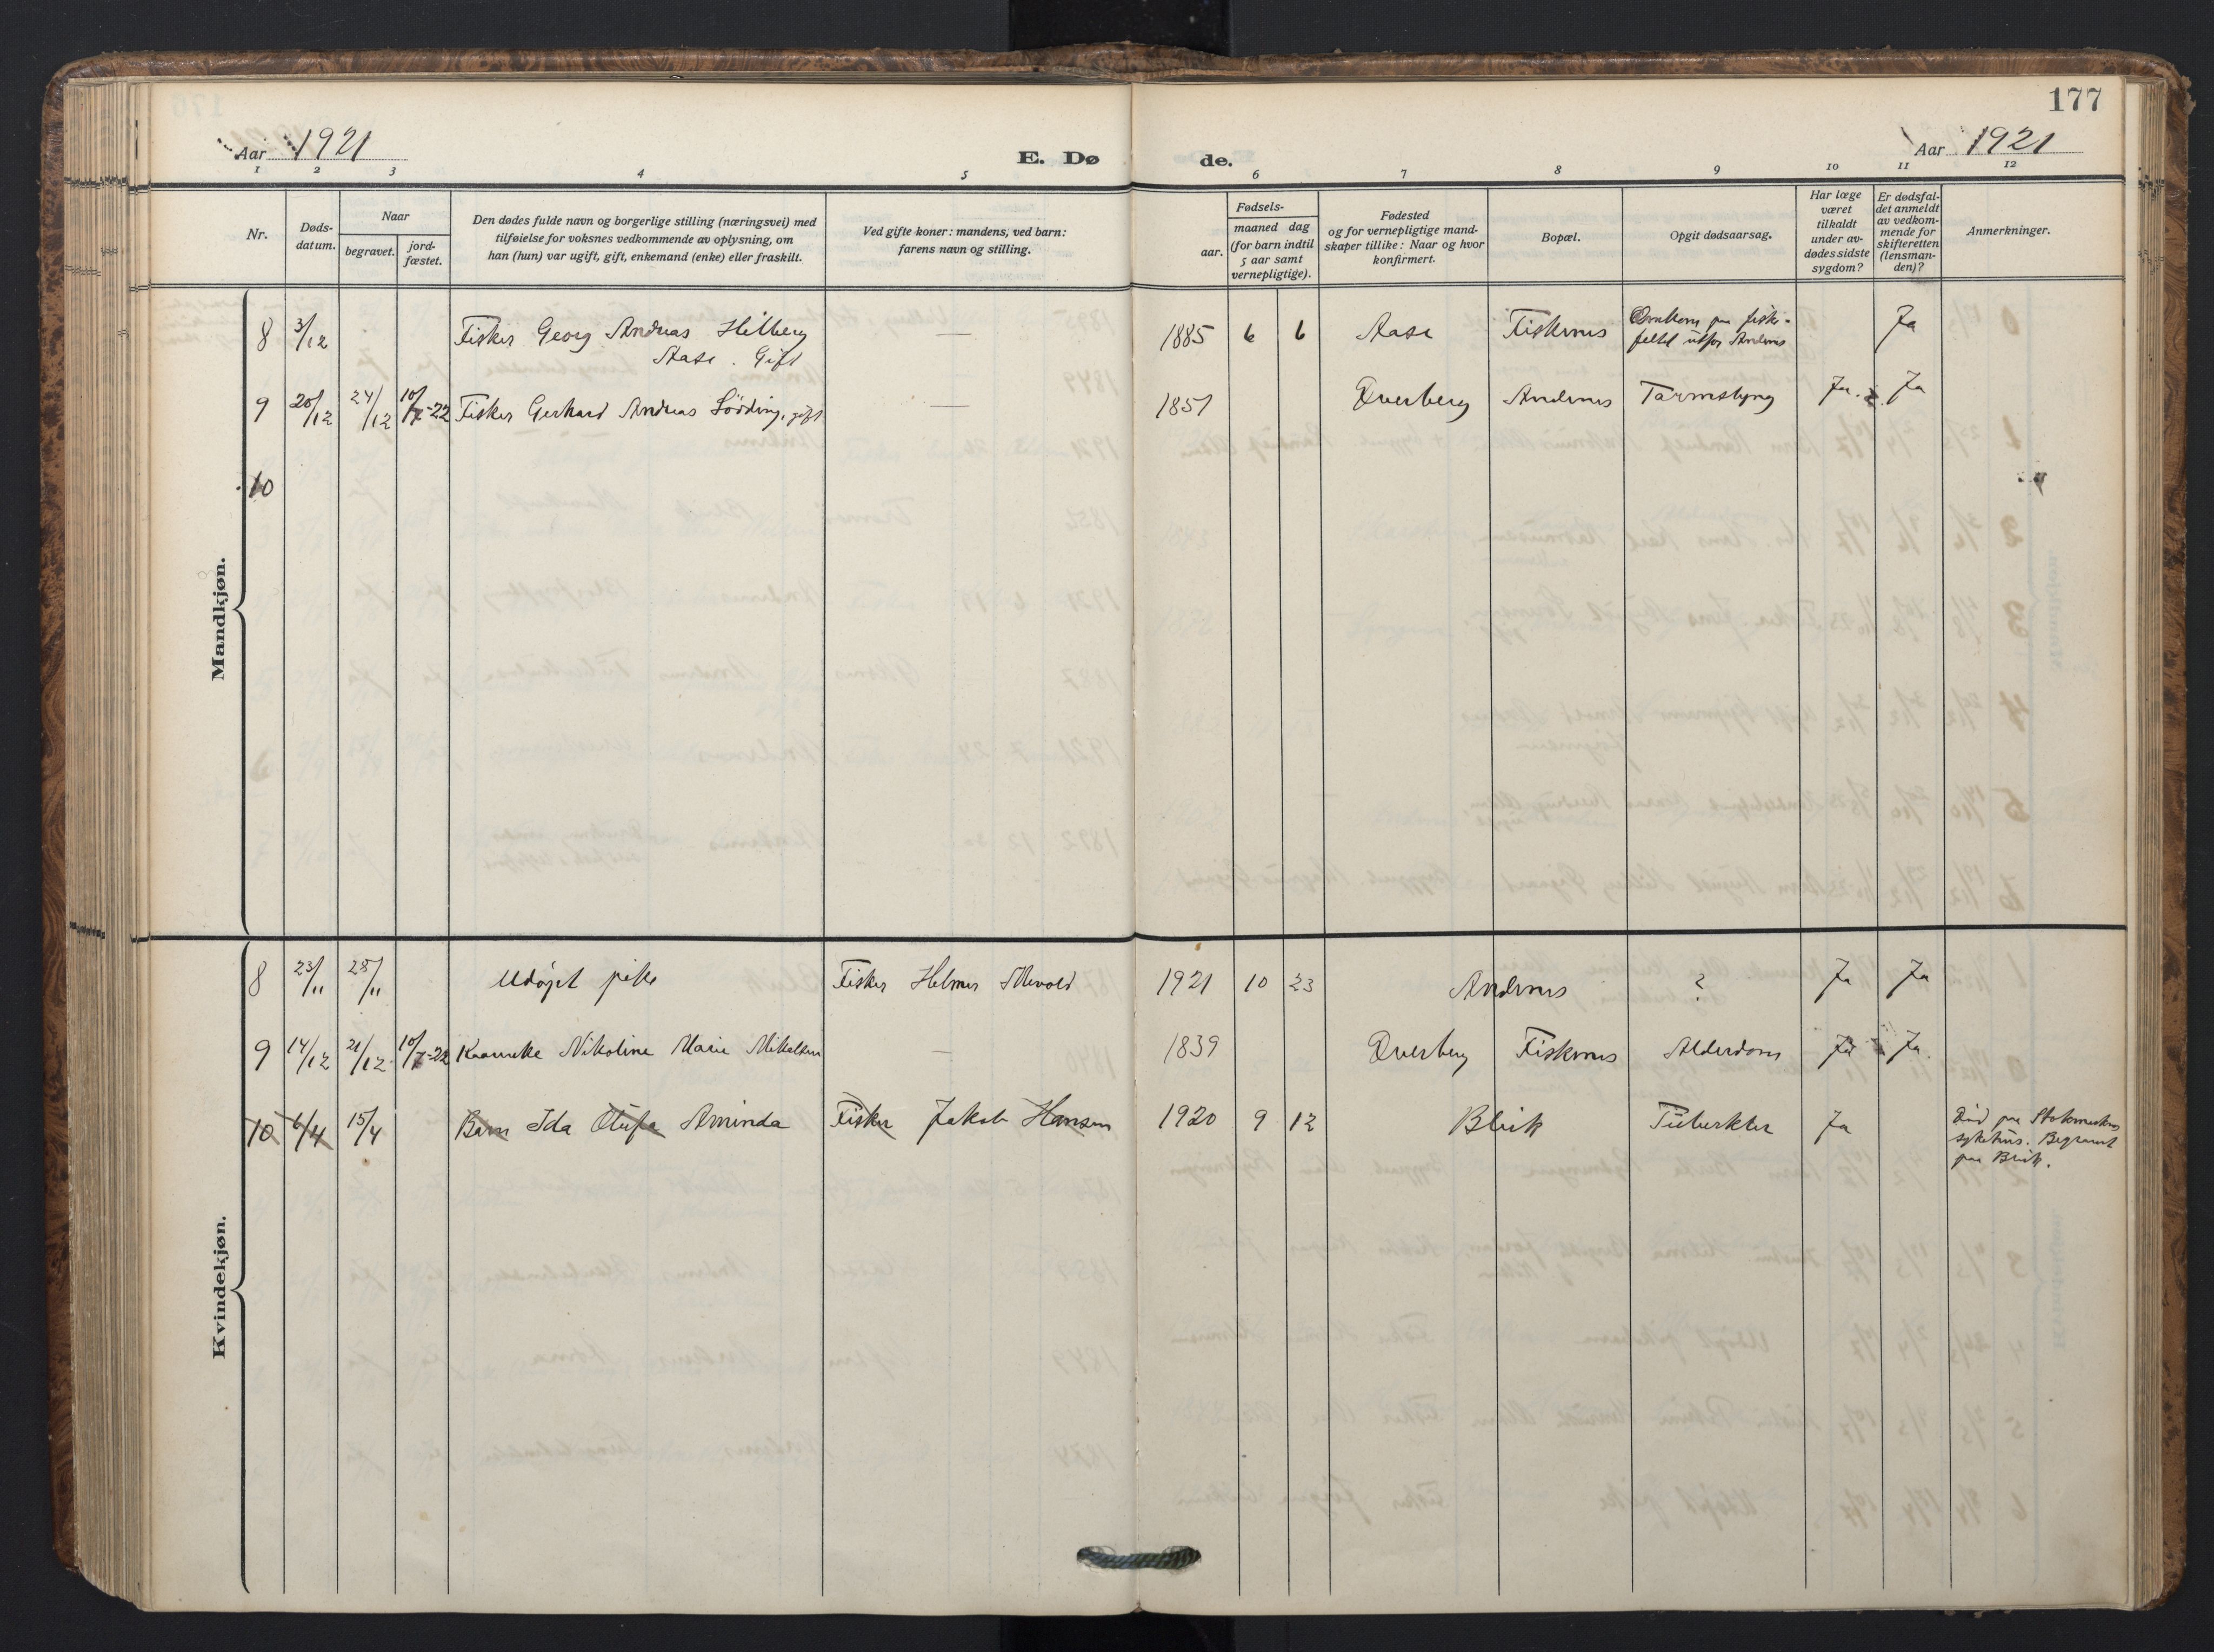 177
Aar 1921
E. Døde.
Aar 1921
1 2 3 4 5 6 7 8 9 10 11 12
Nr.
Døds-
datum.
Naar
begravet.
jord-
fæstet.
Den dødes fulde navn og borgerlige stilling (næringsvei) med
tilføielse for voksnes vedkommende av oplysning, om
han (hun) var ugift, gift, enkemand (enke) eller fraskilt.
Ved gifte koner: mandens, ved barn:
farens navn og stilling.
Fødsels-
aar.
maaned dag
(for barn indtil
5 aar samt
vernepligtige).
Fødested
og for vernepligtige mand-
skaper tillike: Naar og hvor
konfirmert.
Bopæl.
Opgit dødsaarsag.
Har læge
været
tilkaldt
under av-
dødes sidste
sygdom?
Er dødsfal-
det anmeldt
av vedkom-
mende for
skifteretten
(lensman-
den)?
Anmerkninger.
Mandkjøn.
8 3/12 Fisker Georg Andreas Hilberg — 1885 6 6 Aase Fiskenes Omkom paa fiske- Ja
Aase. Gift feltet utfor Andenes
9 20/12 24/12 10/7-22 Fisker Gerhard Andreas Lödding, gift — 1851 Qverberg Andenes Tarmslyng Ja. Ja
10
Kvindekjøn.
8 23/11 28/11 Udøpt pike Fisker Helmer Mevold 1921 10 23 Andenes ? Ja Ja
9 14/12 21/12 10/7-22 Kaarneke Nikoline Marie Mikalsen — 1839 Qverberg Fiskenes Alderdom Ja Ja.
10 6/4 15/4 Barn Ida Olufa Aminda Fisker Jakob Hansen 1920 9 12 Bleik Tüberkler Ja Död paa Stokmarknes
sykehus. Begravet
paa Bleik.